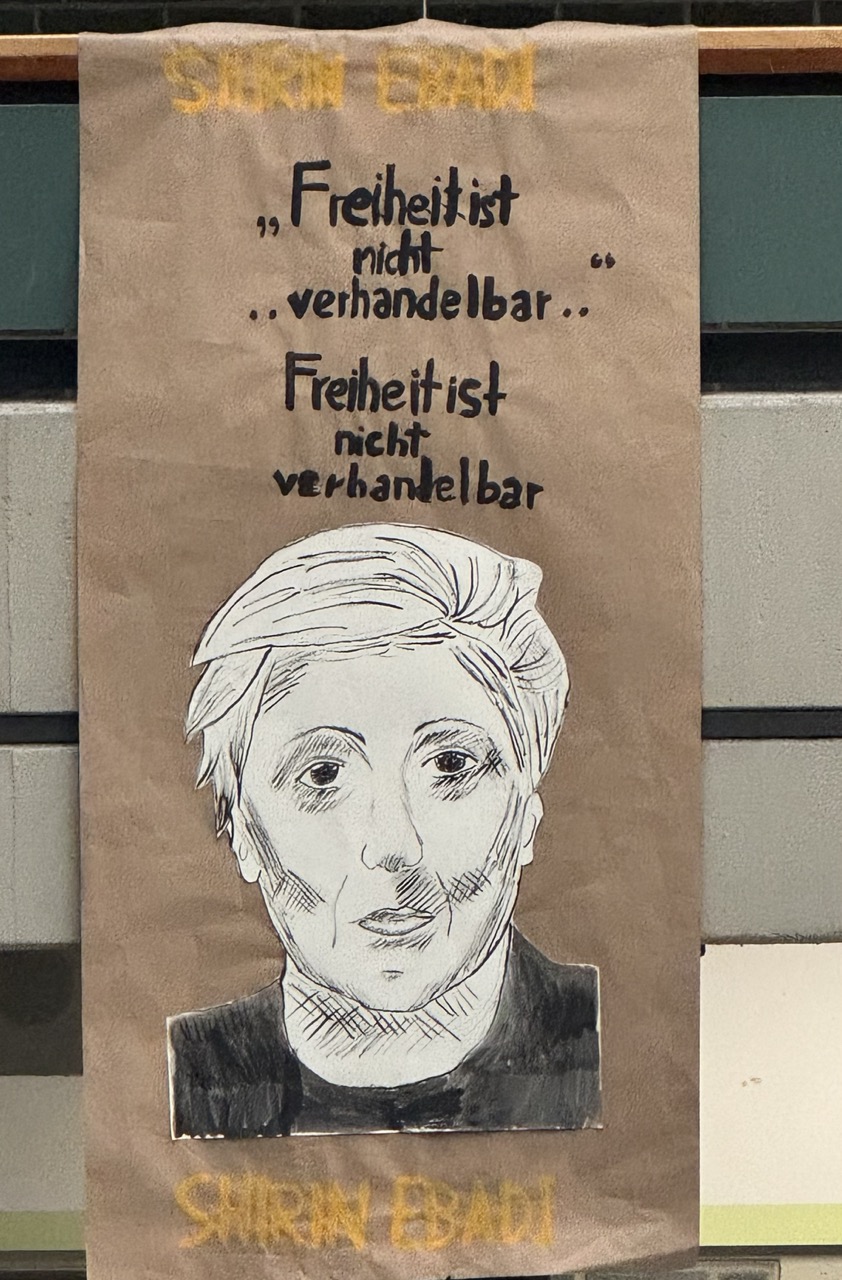 SHIRIN EBADI
„Freiheit ist
nicht
..verhandelbar..“
Freiheit ist
nicht
verhandelbar
SHIRIN EBADI